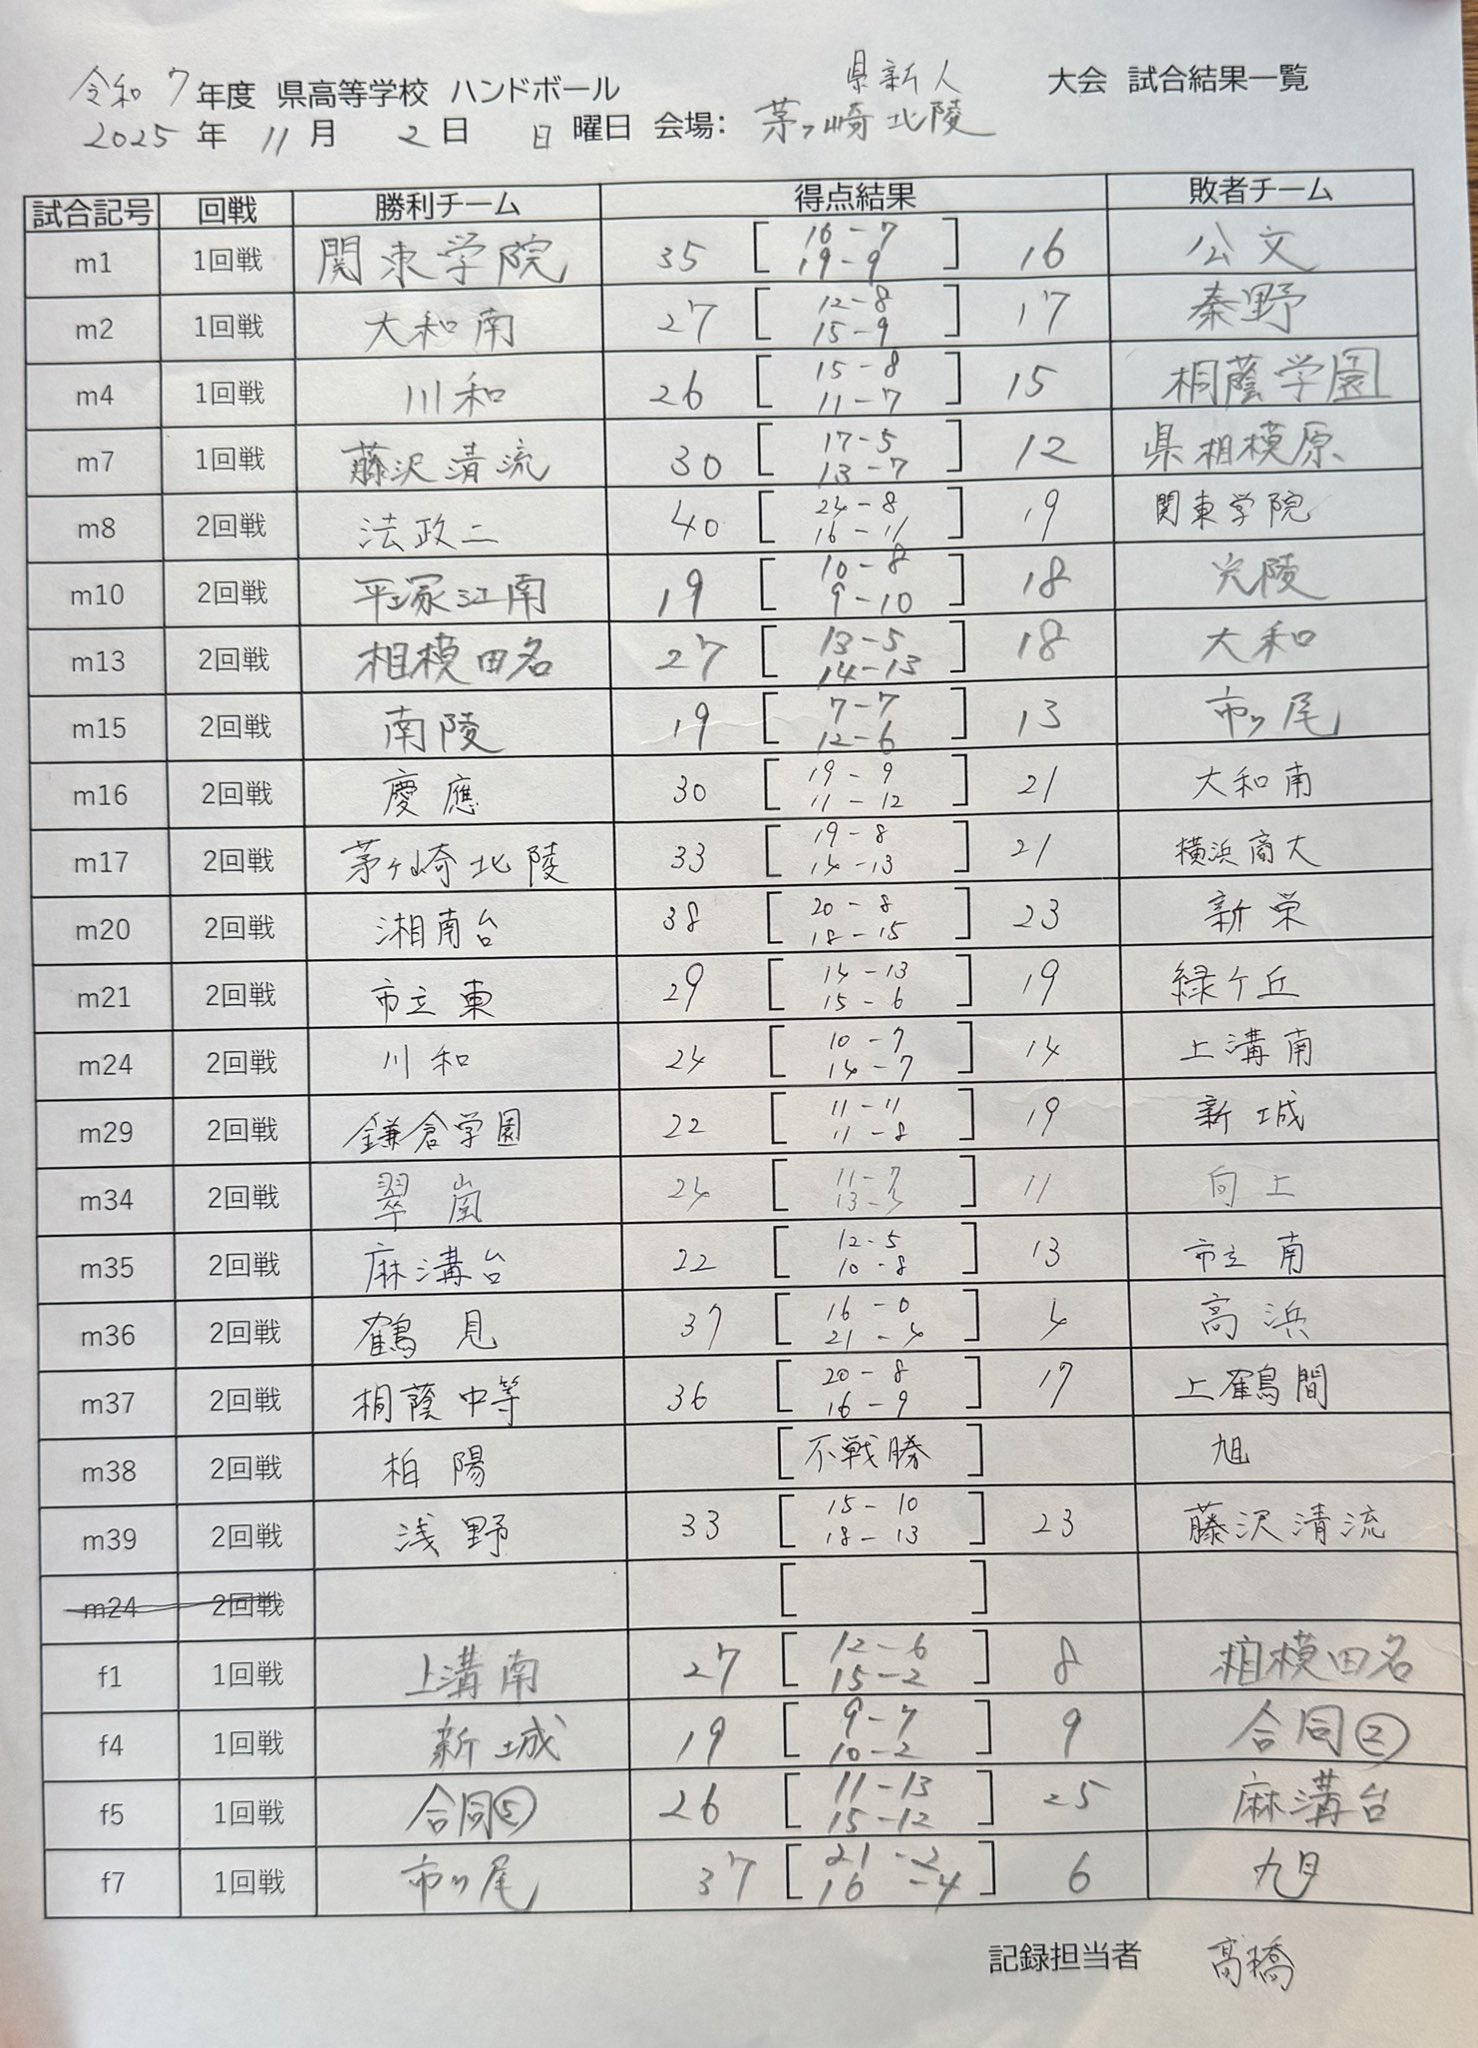 令和7年度 県高等学校 ハンドボール 県新人 大会 試合結果一覧
2025年 11月 2日 日曜日 会場: 茅ヶ崎北陵
試合記号 回戦 勝利チーム 得点結果 敗者チーム
m1 1回戦 関東学院 35 [ 16-7 19-9 ] 16 公文
m2 1回戦 大和南 27 [ 12-8 15-9 ] 17 秦野
m4 1回戦 川和 26 [ 15-8 11-7 ] 15 桐蔭学園
m7 1回戦 藤沢清流 30 [ 17-5 13-7 ] 12 県相模原
m8 2回戦 法政二 40 [ 24-8 16-11 ] 19 関東学院
m10 2回戦 平塚江南 19 [ 10-8 9-10 ] 18 光陵
m13 2回戦 相模田名 27 [ 13-5 14-13 ] 18 大和
m15 2回戦 南陵 19 [ 7-7 12-6 ] 13 市ヶ尾
m16 2回戦 慶應 30 [ 19-9 11-12 ] 21 大和南
m17 2回戦 茅ヶ崎北陵 33 [ 19-8 14-13 ] 21 横浜商大
m20 2回戦 湘南台 38 [ 20-8 18-15 ] 23 新栄
m21 2回戦 市立東 29 [ 14-13 15-6 ] 19 緑ケ丘
m24 2回戦 川和 24 [ 10-7 14-7 ] 14 上溝南
m29 2回戦 鎌倉学園 22 [ 11-11 11-8 ] 19 新城
m34 2回戦 翠嵐 24 [ 11-7 13-4 ] 11 向上
m35 2回戦 麻溝台 22 [ 12-5 10-8 ] 13 市立南
m36 2回戦 鶴見 37 [ 16-0 21-4 ] 4 高浜
m37 2回戦 桐蔭中等 36 [ 20-8 16-9 ] 17 上鶴間
m38 2回戦 柏陽 [ 不戦勝 ] 旭
m39 2回戦 浅野 33 [ 15-10 18-13 ] 23 藤沢清流
m24 2回戦 [ ]
f1 1回戦 上溝南 27 [ 12-6 15-2 ] 8 相模田名
f4 1回戦 新城 19 [ 9-7 10-2 ] 9 合同②
f5 1回戦 合同⑤ 26 [ 11-13 15-12 ] 25 麻溝台
f7 1回戦 市ヶ尾 37 [ 21-2 16-4 ] 6 旭
記録担当者 高橋